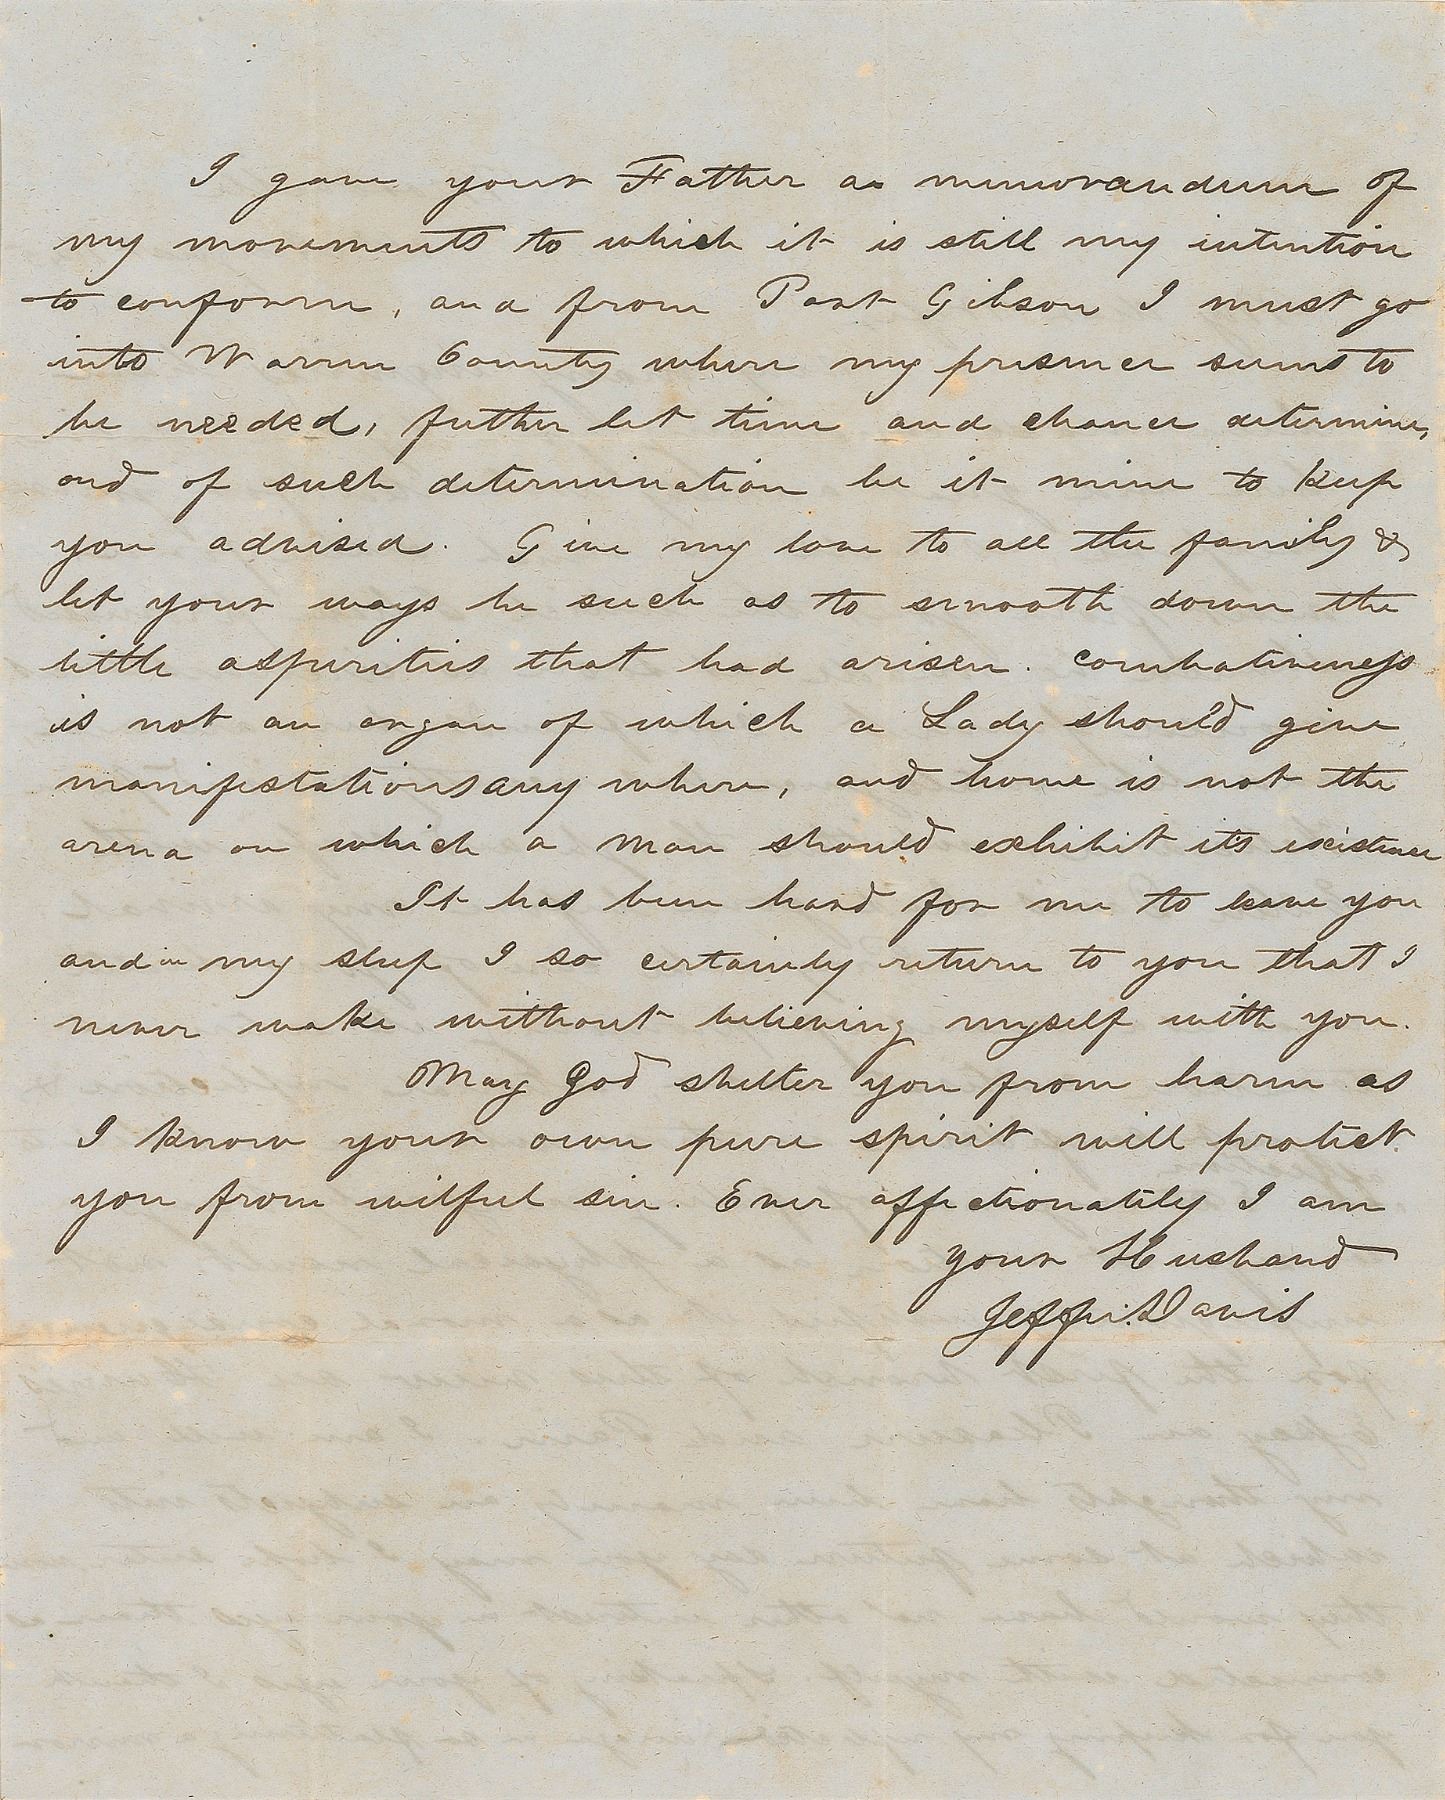 I gave your Father a memorandum of
my movements to which it is still my intention
to conform, and from Port Gibson I must go
into Warren County where my presence seems to
be needed, futher let time and chance determine,
and of such determination be it mine to keep
you advised. Give my love to all the family &
let your ways be such as to smooth down the
little asperities that had arisen. Combativeness
is not an organ of which a Lady should give
manifestations any where, and home is not the
arena on which a man should exhibit its existence
It has been hard for me to leave you
and in my sleep I so certainly return to you that I
never wake without believing myself with you.
May God shelter you from harm as
I know your own pure spirit will protect
you from wilful sin. Ever affectionately I am
your Husband
Jeffn. Davis